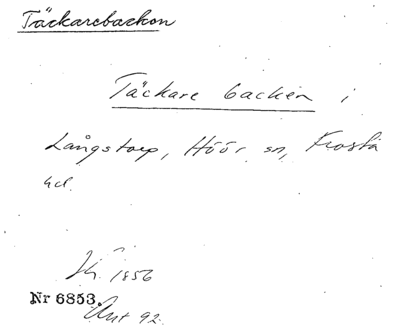 Täckarebackon
Täckare backen i
Långstorp, Höör sn, Frosta
hd.
1856
Nr 6853.
Ant 92.